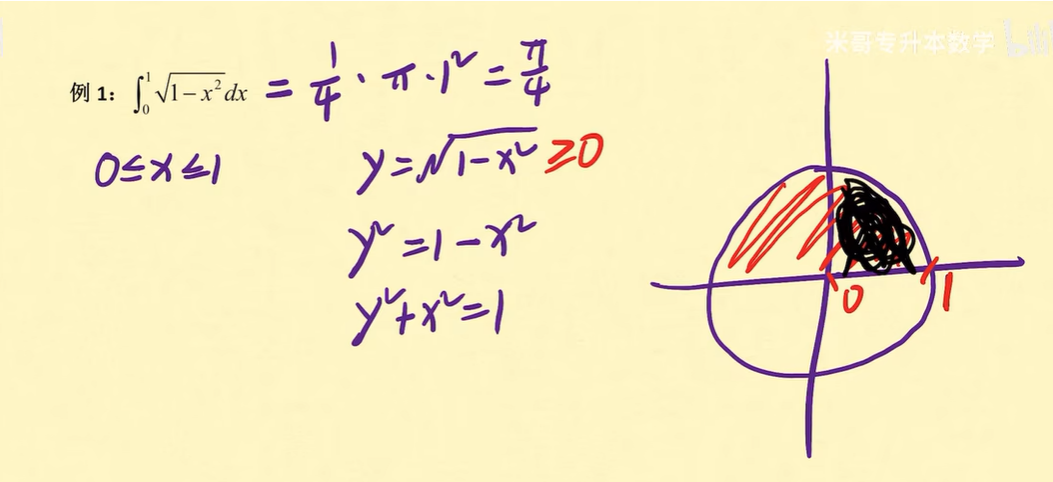 米哥专升本数学 bilibili
例 1： ∫₀¹ √(1−x²) dx = 1/4 · π · 1² = π/4
0≤x≤1
y=√(1−x²) ≥0
y²=1−x²
y²+x²=1
0 1